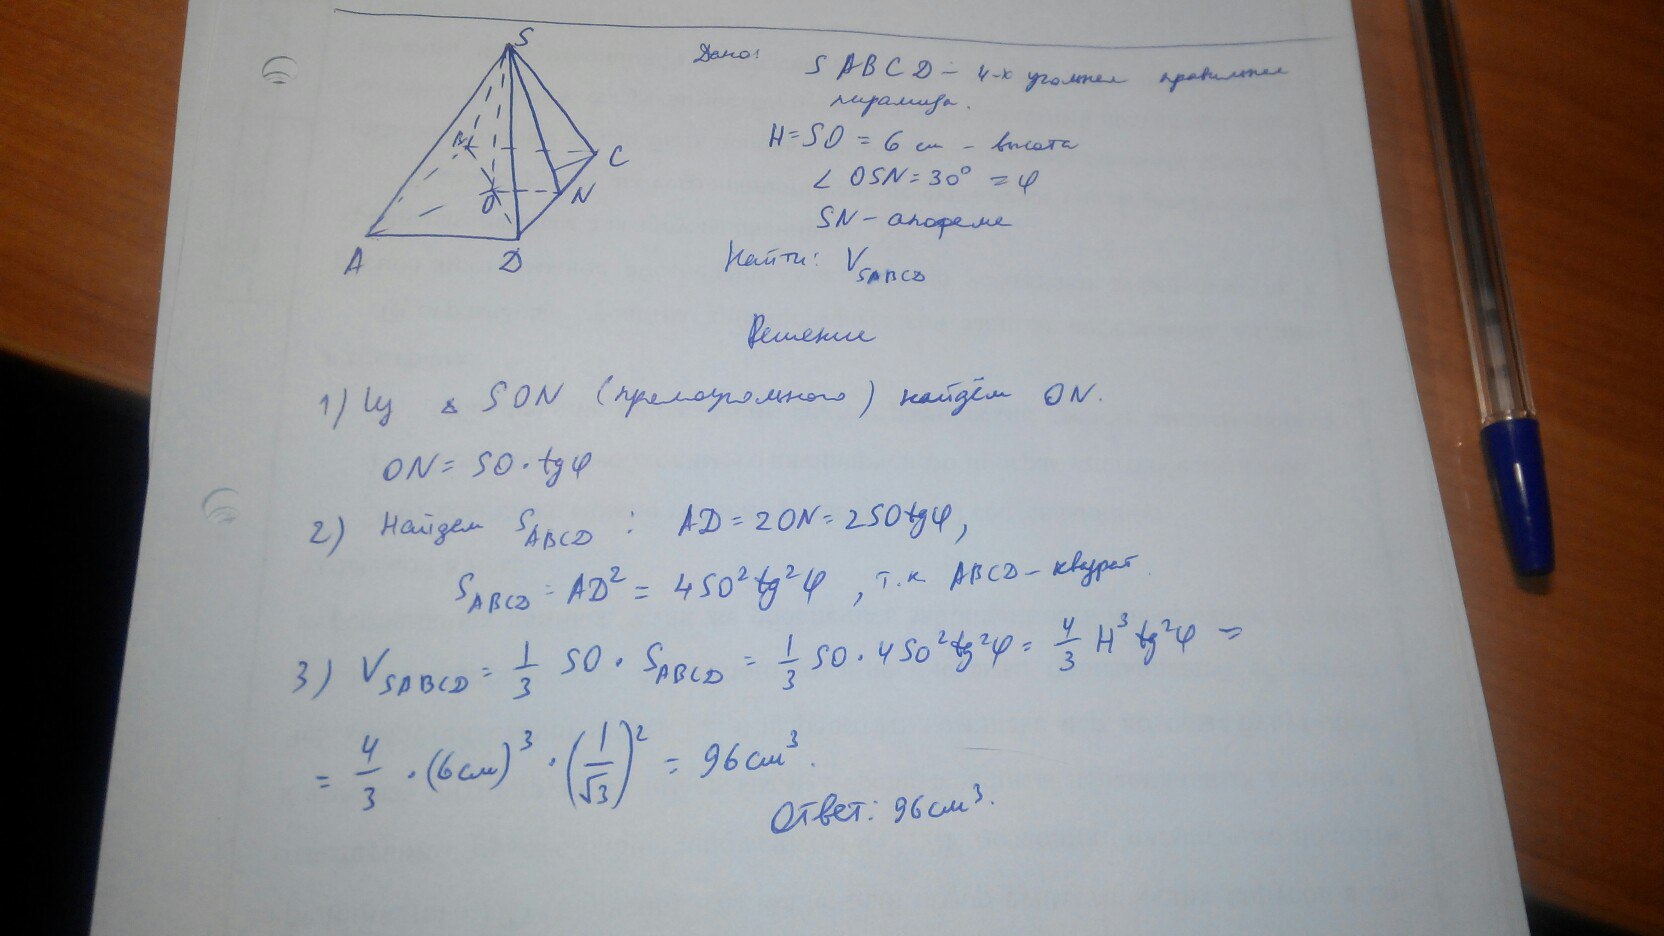 S
B
C
O
N
A
D
Дано: SABCD – 4-х угольная правильная
пирамида.
H=SO = 6 см – высота
∠ OSN = 30° = φ
SN – апофема
Найти: V_SABCD
Решение
1) Из △ SON (прямоугольного) найдём ON.
ON = SO · tgφ
2) Найдем S_ABCD : AD = 2ON = 2SOtgφ,
S_ABCD = AD² = 4SO²tg²φ , т.к ABCD – квадрат.
3) V_SABCD = 1/3 SO · S_ABCD = 1/3 SO · 4SO²tg²φ = 4/3 H³ tg²φ =
= 4/3 · (6см)³ · (1/√3)² = 96 см³.
Ответ: 96 см³.